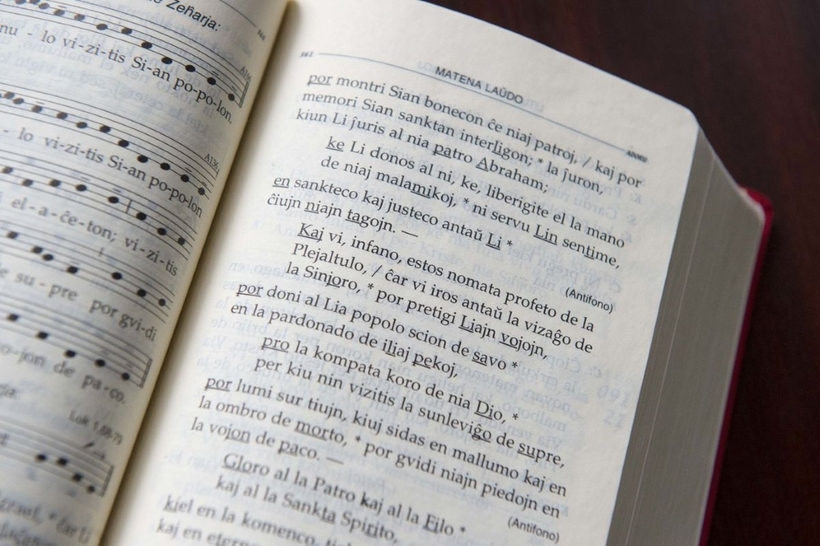 de Zeĥarja:
nu - lo vi-zi-tis Si-an po-po-lon.
lo vi-zi-tis Si-an po-po-lon
el-a-ĉe-ton; vi-zi-tis
de su-pre por gvi-di
vo-jon de pa-co.
Luk 1,68-79
MATENA LAŬDO
por montri Sian bonecon ĉe niaj patroj, / kaj por
memori Sian sanktan interligon; * la ĵuron,
kiun Li ĵuris al nia patro Abraham;
ke Li donos al ni, ke, liberigite el la mano
de niaj malamikoj, * ni servu Lin sentime,
en sankteco kaj justeco antaŭ Li *
ĉiujn niajn tagojn. —
(Antifono)
Kaj vi, infano, estos nomata profeto de la
Plejaltulo, / ĉar vi iros antaŭ la vizaĝo de
la Sinjoro, * por pretigi Liajn vojojn,
por doni al Lia popolo scion de savo *
en la pardonado de iliaj pekoj,
pro la kompata koro de nia Dio, *
per kiu nin vizitis la sunleviĝo de supre,
por lumi sur tiujn, kiuj sidas en mallumo kaj en
la ombro de morto, * por gvidi niajn piedojn en
la vojon de paco. —
(Antifono)
Gloro al la Patro kaj al la Filo *
kaj al la Sankta Spirito,
kiel en la komenco, tiel
kaj en eterne